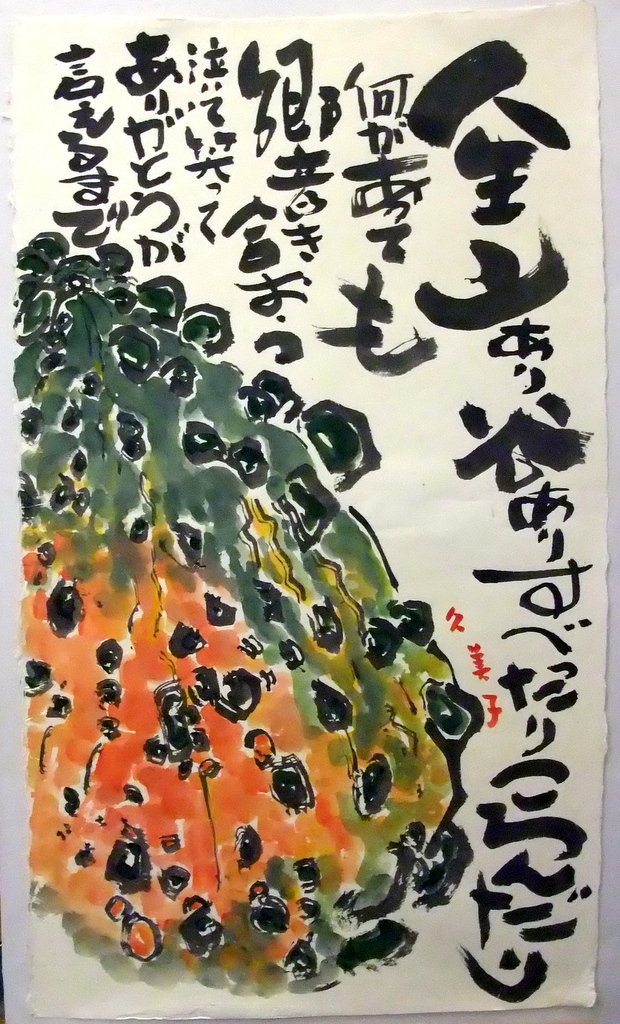 人生山あり谷ありすべったりころんだり
何があっても
響き合おう
泣いて笑って
ありがとうが
言えるまで
久美子